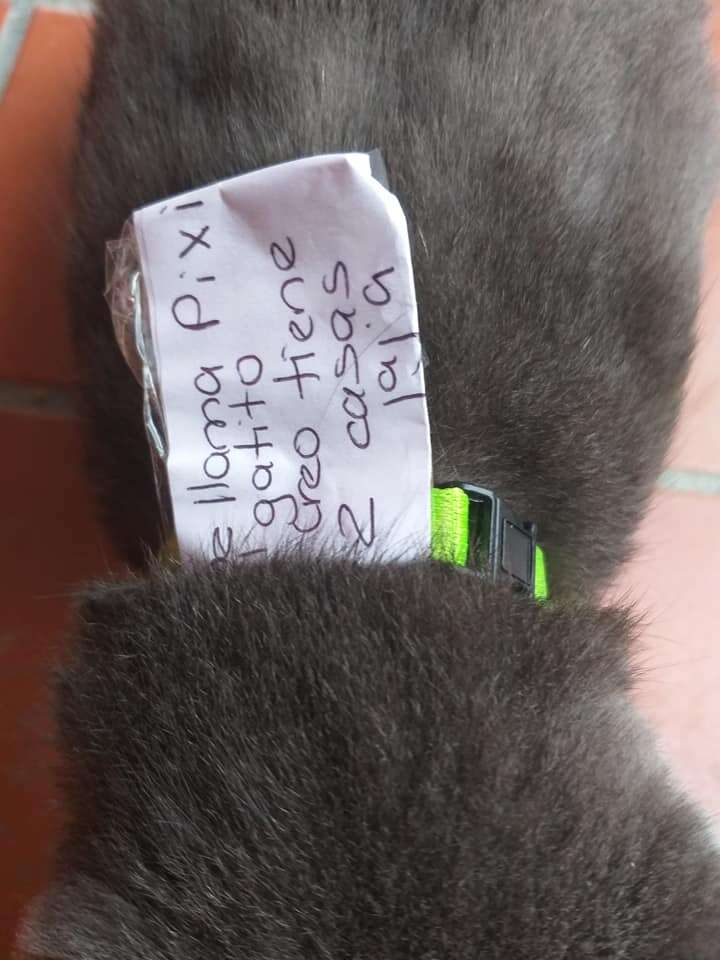 e llama Pixi
l gatito
creo tiene
2 casas
jaja